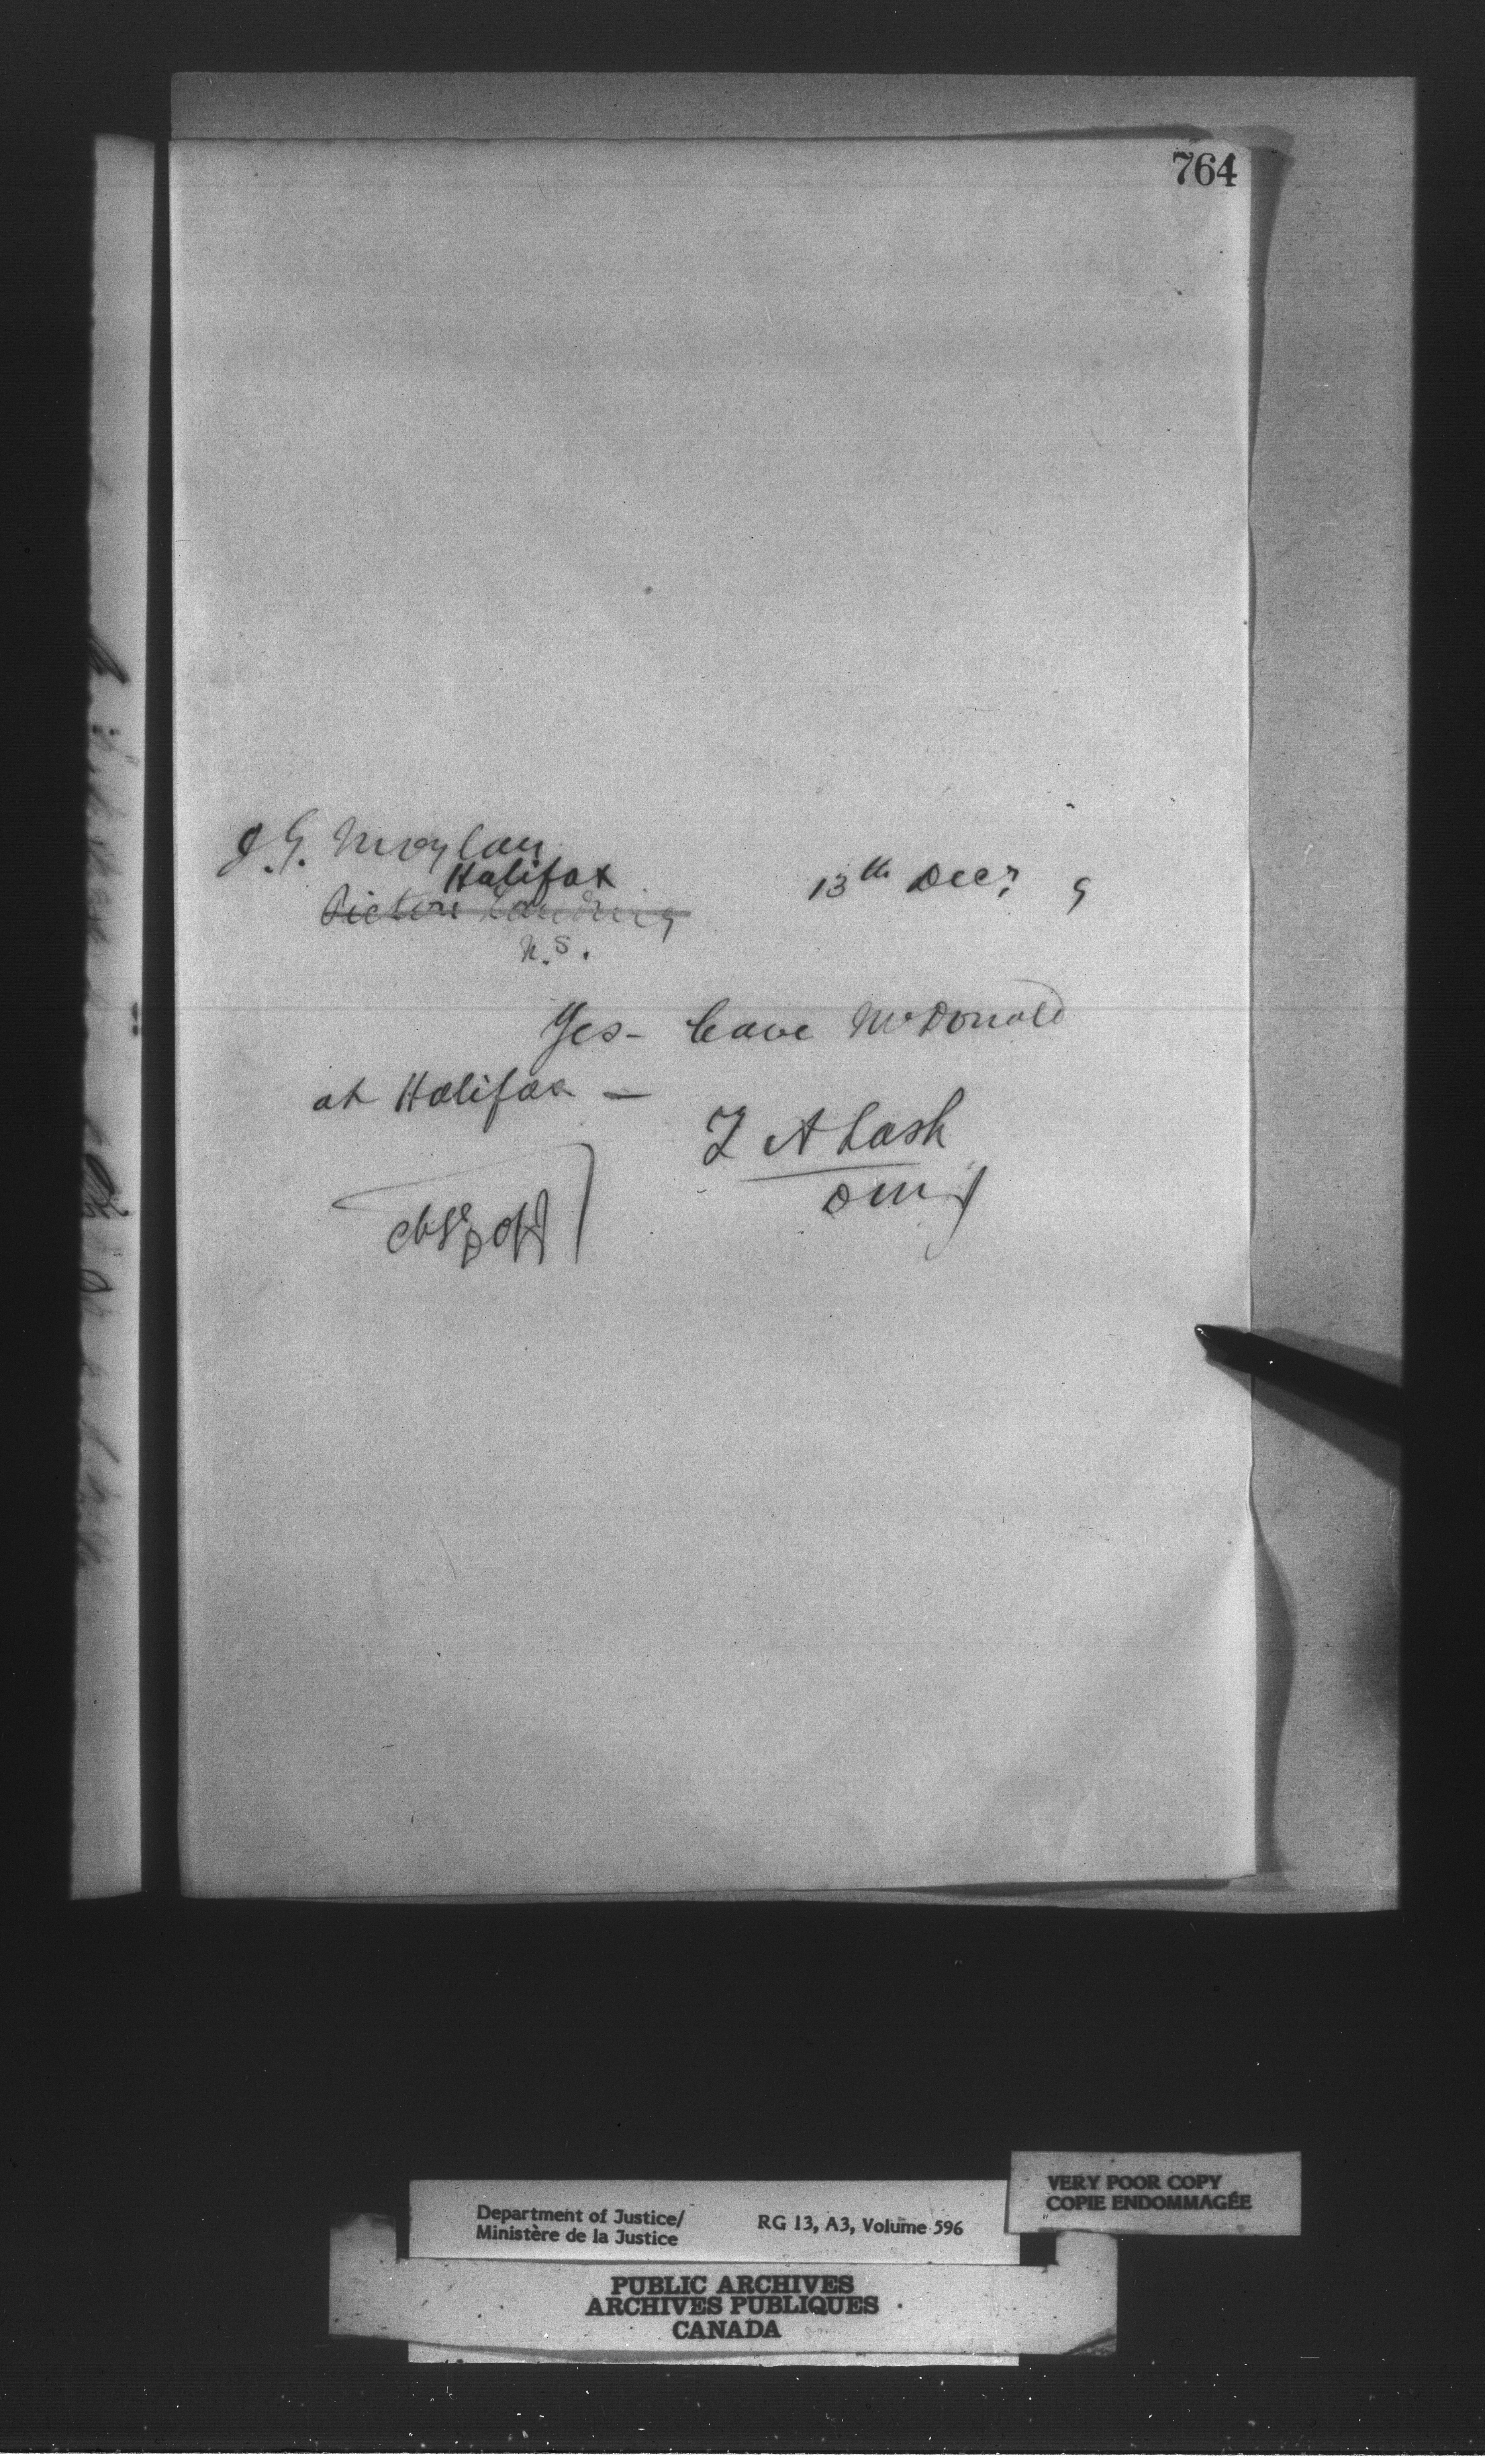 764
J. G. Moylan
Halifax
Pictou Landing
N.S.
13th Decr 9
Yes – leave McDonald
at Halifax –
Z A Lash
DMJ
Department of Justice/
Ministère de la Justice
RG 13, A3, Volume 596
VERY POOR COPY
COPIE ENDOMMAGÉE
PUBLIC ARCHIVES
ARCHIVES PUBLIQUES
CANADA